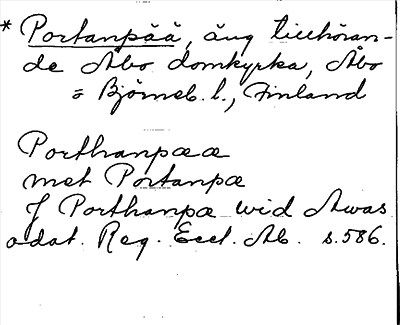 * Portanpää, äng tillhöran-
de Åbo domkyrka, Åbo
o Björneb. l., Finland
Porthanpææ
met Portanpæ
J Porthanpæ wid Awas
odat. Reg. Eccl. Ab. s. 586.